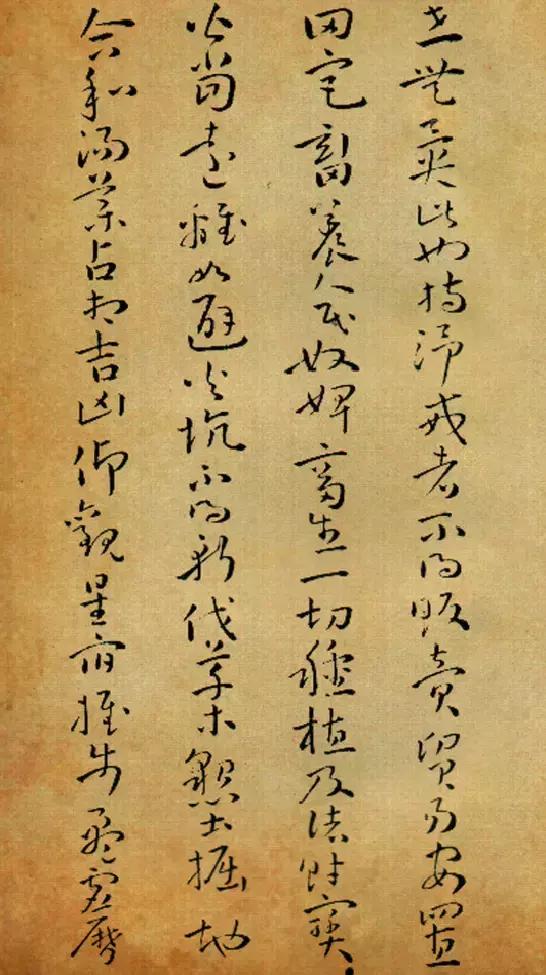 住世無異此也持淨戒者不得販賣貿易安置
田宅畜養人民奴婢畜生一切種植及諸財寶
皆當遠離如避火坑不得斬伐草木墾土掘地
合和湯藥占相吉凶仰觀星宿推步盈虛曆